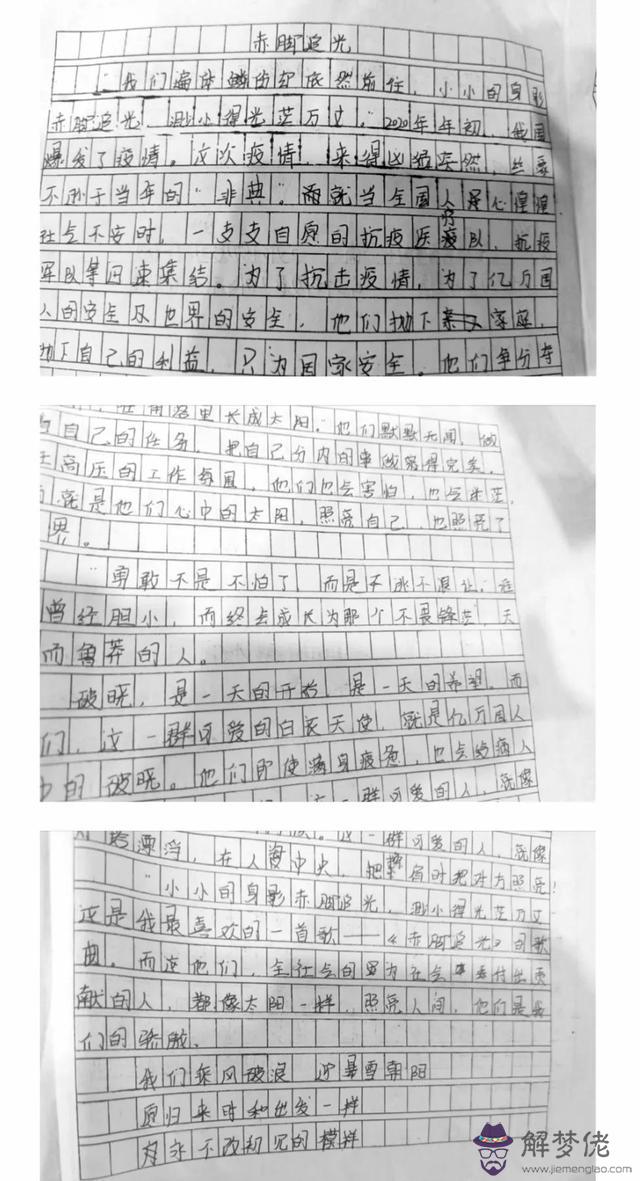 赤脚追光
“我们遍体鳞伤却依然前往,小小的身影
赤脚追光 渺小得光芒万丈。”2020年年初,我国
爆发了疫情。这次疫情,来得凶猛突然,丝毫
不逊于当年的“非典”。而就当全国人民心惶惶
社会不安时,一支支自愿的抗疫医疗队,抗疫
军队等迅速集结。为了抗击疫情,为了亿万国
人的安全及世界的安全,他们抛下家庭,
抛下自己的利益,只为国家安全。他们争分夺
在角落里长成太阳。”他们默默无闻,做
自己的任务,把自己分内的事做完得完美,
高压的工作氛围,他们也会害怕,也会迷茫,
就是他们心中的太阳,照亮自己,也照亮了
界。
“勇敢不是不怕了,而是不逃不退让。”
曾经胆小,而终会成长为那个不畏锋芒,天
而鲁莽的人。
破晓,是一天的开始,是一天的希望。而
们,这一群可爱的白衣天使,就是亿万国人
中的破晓。他们即使满身疲惫,也会给病人
一群可爱的人,就像
漂泊,在人海中央,把对方照亮!
“小小的身影赤脚追光,渺小得光芒万丈
这是我最喜欢的一首歌——《赤脚追光》的歌
曲。而这他们,全社会的因为社会付出贡
献的人,都像太阳一样,照亮人间,他们是我
们的骄傲。
我们乘风破浪 迎暴雪朝阳
愿归来时和出发一样
身永不改初见的模样
解梦佬
www.jiemenglao.com